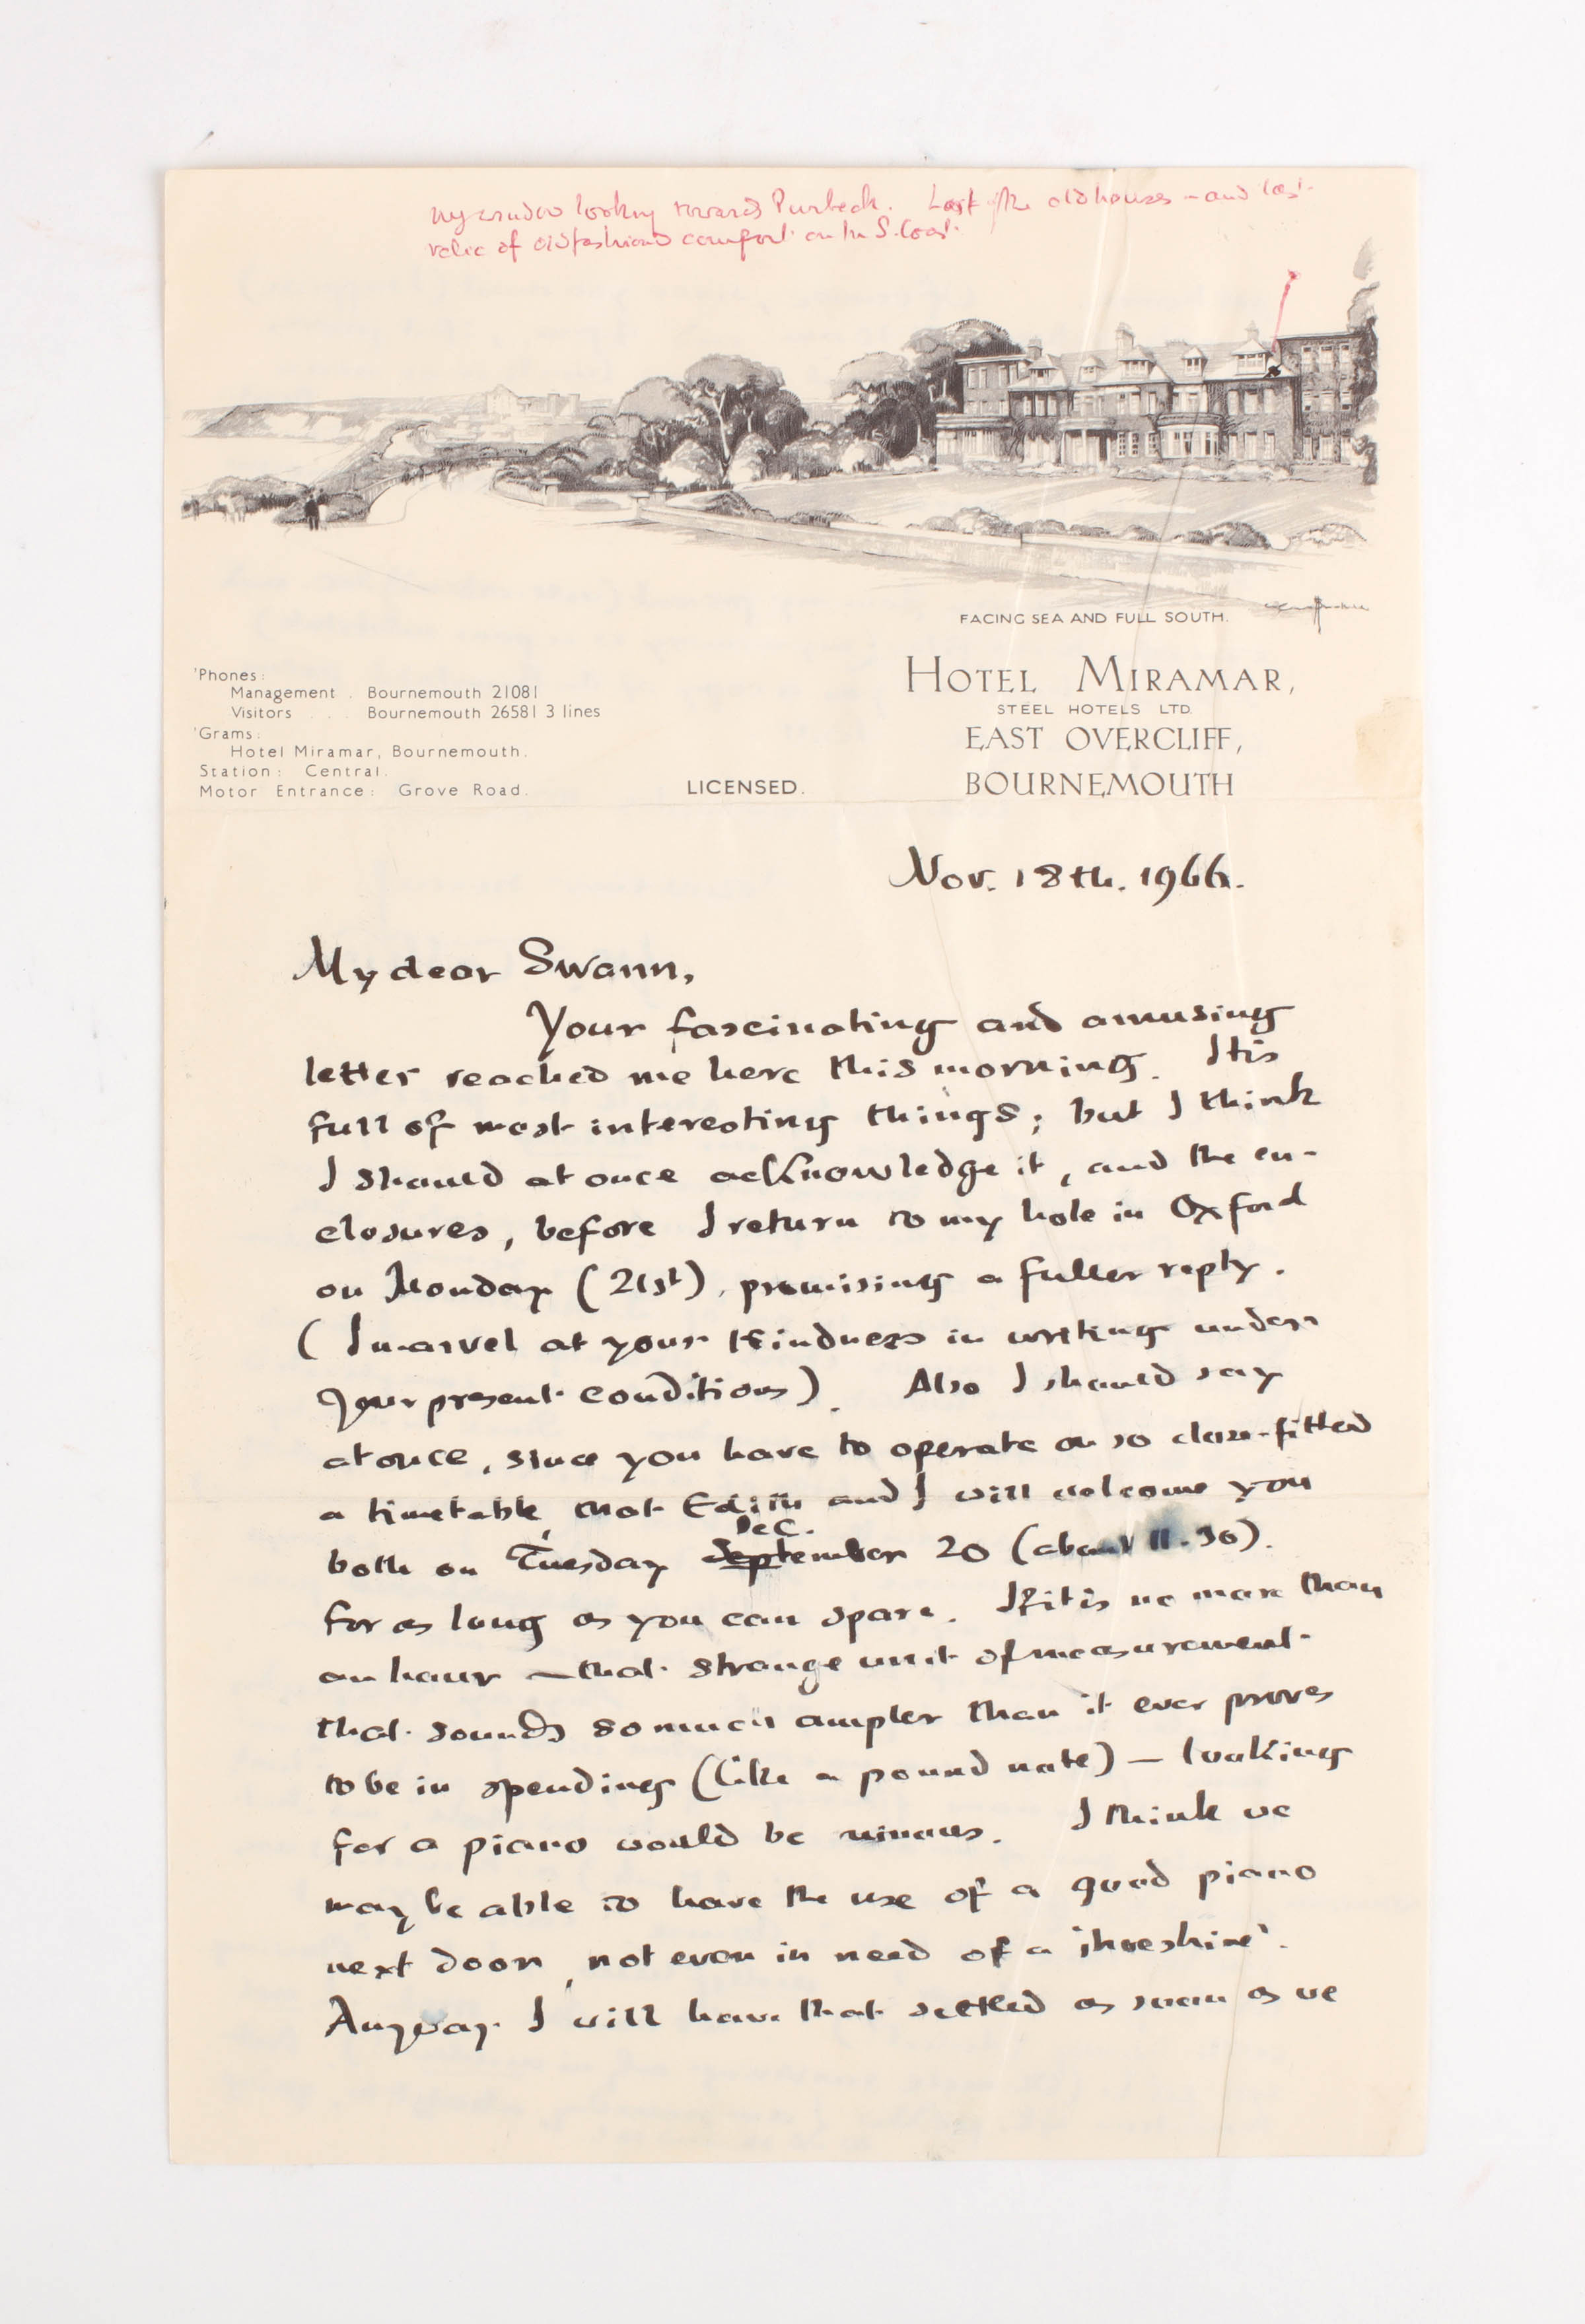 my window looking towards Purbeck. Last of the old houses – and last
relic of oldfashioned comfort on the S. Coast.
FACING SEA AND FULL SOUTH.
'Phones:
Management . Bournemouth 21081
Visitors . . . Bournemouth 26581 3 lines
'Grams:
Hotel Miramar, Bournemouth.
Station: Central.
Motor Entrance: Grove Road.
LICENSED.
HOTEL MIRAMAR,
STEEL HOTELS LTD.
EAST OVERCLIFF,
BOURNEMOUTH
Nov. 18th. 1966.
My dear Swann,
Your fascinating and amusing
letter reached me here this morning. It is
full of most interesting things; but I think
I should at once acknowledge it, and the en-
closures, before I return to my hole in Oxford
on Monday (21st), promising a fuller reply.
(I marvel at your kindness in writing under
your present conditions). Also I should say
at once, since you have to operate on so close-fitted
a timetable, that Edith and I will welcome you
Dec.
both on Tuesday September 20 (about 11.30).
for as long as you can spare. If it is no more than
an hour – that strange unit of measurement
that sounds so much ampler than it ever proves
to be in spending (like a pound note) – looking
for a piano would be ruinous. I think we
may be able to have the use of a good piano
next door, not even in need of a 'shoeshine'.
Anyway I will have that settled as soon as we